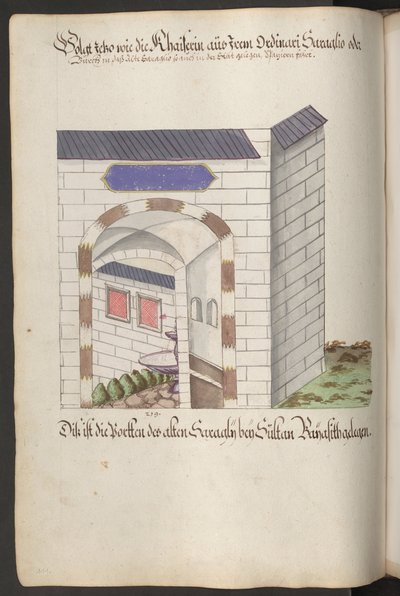 Volgt jezo wie die Khaiserin aus Irem Ordinari Saraglio oda
in daß Alte Saraglio so auch in der Stat gelegen, spazieren fehrt.
219.
Diß ist die Portten des alten Saraglij beÿ Sultan Baÿasith gelegen.